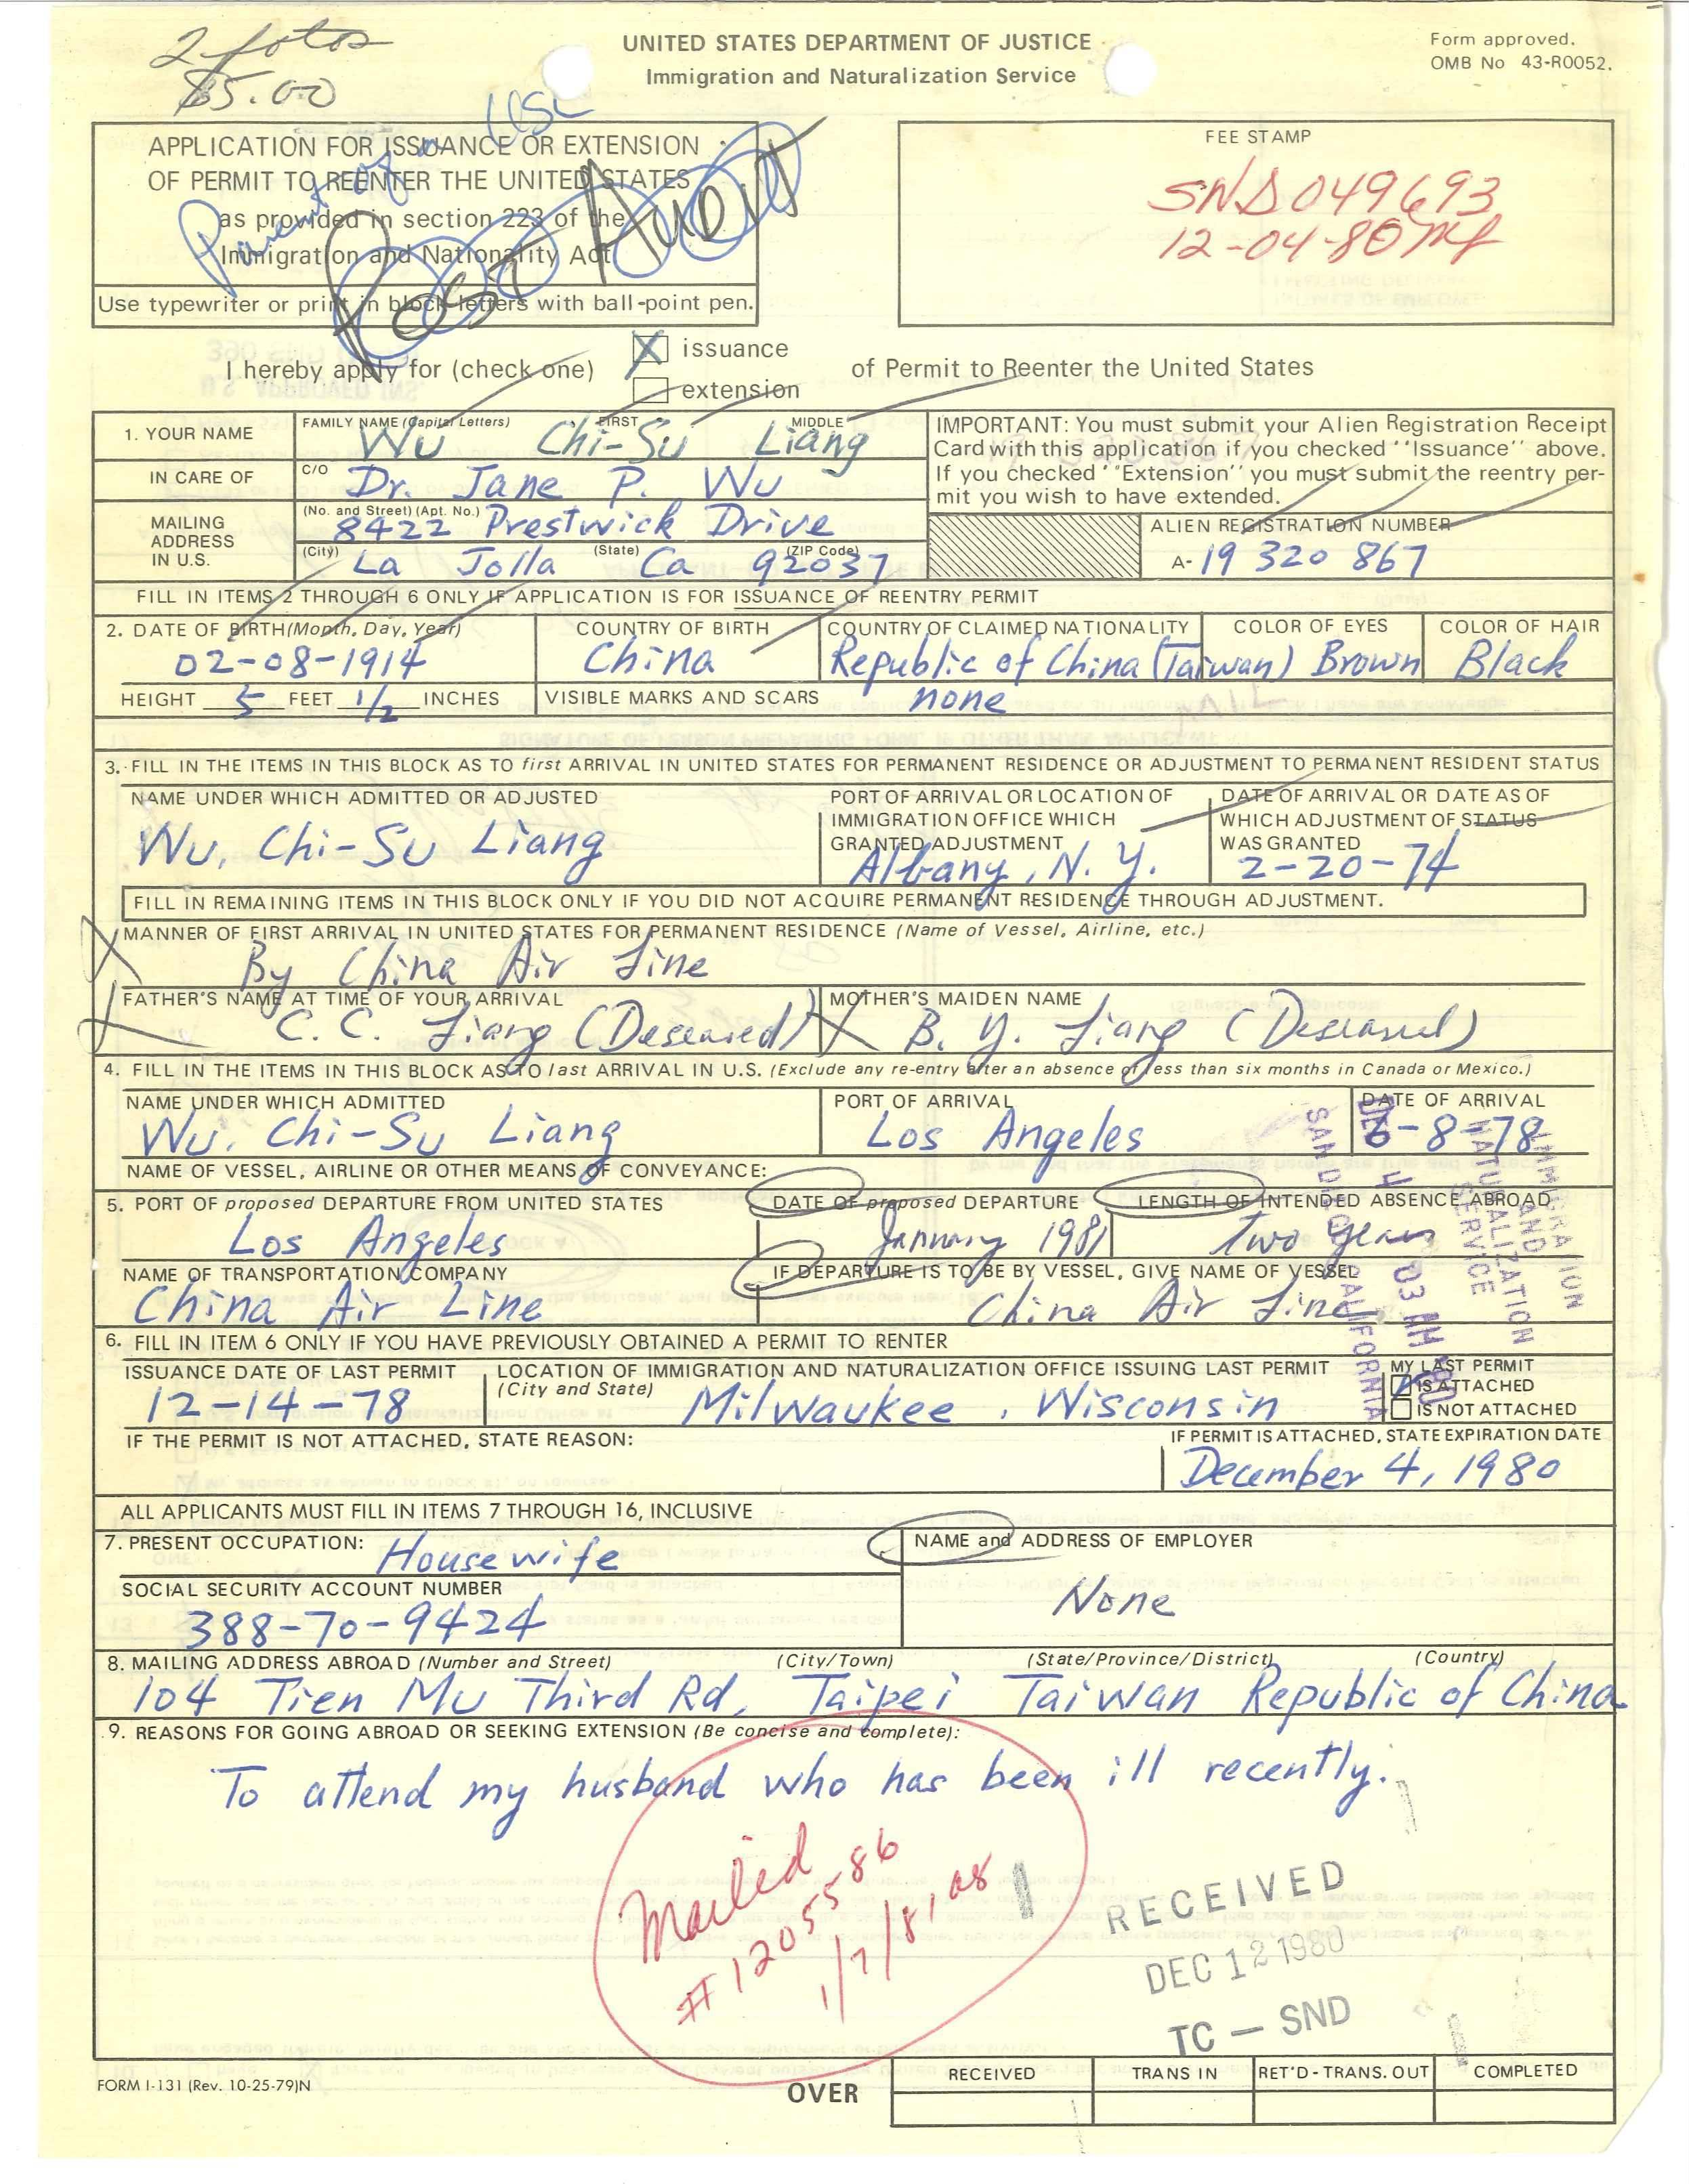 2 fotos
$5.00
UNITED STATES DEPARTMENT OF JUSTICE
Immigration and Naturalization Service
Form approved.
OMB No 43-R0052.
Parent of a USC
APPLICATION FOR ISSUANCE OR EXTENSION
OF PERMIT TO REENTER THE UNITED STATES
as provided in section 223 of the
Immigration and Nationality Act
Use typewriter or print in block letters with ball-point pen.
Post Audit
FEE STAMP
SND 049693
12-04-80
I hereby apply for (check one)
X issuance
extension
of Permit to Reenter the United States
1. YOUR NAME
FAMILY NAME (Capital Letters) FIRST MIDDLE
Wu Chi-Su Liang
IN CARE OF
C/O
Dr. Jane P. Wu
MAILING
ADDRESS
IN U.S.
(No. and Street) (Apt. No.)
8422 Prestwick Drive
(City) (State) (ZIP Code)
La Jolla Ca 92037
IMPORTANT: You must submit your Alien Registration Receipt
Card with this application if you checked ''Issuance'' above.
If you checked ''Extension'' you must submit the reentry per-
mit you wish to have extended.
ALIEN REGISTRATION NUMBER
A- 19 320 867
FILL IN ITEMS 2 THROUGH 6 ONLY IF APPLICATION IS FOR ISSUANCE OF REENTRY PERMIT
2. DATE OF BIRTH (Month, Day, Year)
02-08-1914
COUNTRY OF BIRTH
China
COUNTRY OF CLAIMED NATIONALITY
Republic of China (Taiwan)
COLOR OF EYES
Brown
COLOR OF HAIR
Black
HEIGHT 5 FEET 1/2 INCHES
VISIBLE MARKS AND SCARS
none
3. FILL IN THE ITEMS IN THIS BLOCK AS TO first ARRIVAL IN UNITED STATES FOR PERMANENT RESIDENCE OR ADJUSTMENT TO PERMANENT RESIDENT STATUS
NAME UNDER WHICH ADMITTED OR ADJUSTED
Wu, Chi-Su Liang
PORT OF ARRIVAL OR LOCATION OF
IMMIGRATION OFFICE WHICH
GRANTED ADJUSTMENT
Albany, N. Y.
DATE OF ARRIVAL OR DATE AS OF
WHICH ADJUSTMENT OF STATUS
WAS GRANTED
2-20-74
FILL IN REMAINING ITEMS IN THIS BLOCK ONLY IF YOU DID NOT ACQUIRE PERMANENT RESIDENCE THROUGH ADJUSTMENT.
MANNER OF FIRST ARRIVAL IN UNITED STATES FOR PERMANENT RESIDENCE (Name of Vessel, Airline, etc.)
By China Air Line
FATHER'S NAME AT TIME OF YOUR ARRIVAL
C. C. Liang (Deseased)
MOTHER'S MAIDEN NAME
B. Y. Liang (Deseased)
4. FILL IN THE ITEMS IN THIS BLOCK AS TO last ARRIVAL IN U.S. (Exclude any re-entry after an absence of less than six months in Canada or Mexico.)
NAME UNDER WHICH ADMITTED
Wu, Chi-Su Liang
PORT OF ARRIVAL
Los Angeles
DATE OF ARRIVAL
6-8-78
NAME OF VESSEL, AIRLINE OR OTHER MEANS OF CONVEYANCE:
IMMIGRATION
AND
NATURALIZATION
SERVICE
DEC 4 03 AM '80
SAN DIEGO CALIFORNIA
5. PORT OF proposed DEPARTURE FROM UNITED STATES
Los Angeles
DATE OF proposed DEPARTURE
January 1981
LENGTH OF INTENDED ABSENCE ABROAD
Two years
NAME OF TRANSPORTATION COMPANY
China Air Line
IF DEPARTURE IS TO BE BY VESSEL, GIVE NAME OF VESSEL
China Air Line
6. FILL IN ITEM 6 ONLY IF YOU HAVE PREVIOUSLY OBTAINED A PERMIT TO RENTER
ISSUANCE DATE OF LAST PERMIT
12-14-78
LOCATION OF IMMIGRATION AND NATURALIZATION OFFICE ISSUING LAST PERMIT
(City and State)
Milwaukee, Wisconsin
MY LAST PERMIT
IS ATTACHED
IS NOT ATTACHED
IF THE PERMIT IS NOT ATTACHED, STATE REASON:
IF PERMIT IS ATTACHED, STATE EXPIRATION DATE
December 4, 1980
ALL APPLICANTS MUST FILL IN ITEMS 7 THROUGH 16, INCLUSIVE
7. PRESENT OCCUPATION:
Housewife
NAME and ADDRESS OF EMPLOYER
None
SOCIAL SECURITY ACCOUNT NUMBER
388-70-9424
8. MAILING ADDRESS ABROAD (Number and Street) (City/Town) (State/Province/District) (Country)
104 Tien Mu Third Rd, Taipei Taiwan Republic of China
9. REASONS FOR GOING ABROAD OR SEEKING EXTENSION (Be concise and complete):
To attend my husband who has been ill recently.
Mailed
#1205586
1/7/81
RECEIVED
DEC 12 1980
TC — SND
FORM I-131 (Rev. 10-25-79)N
OVER
RECEIVED
TRANS IN
RET'D - TRANS. OUT
COMPLETED